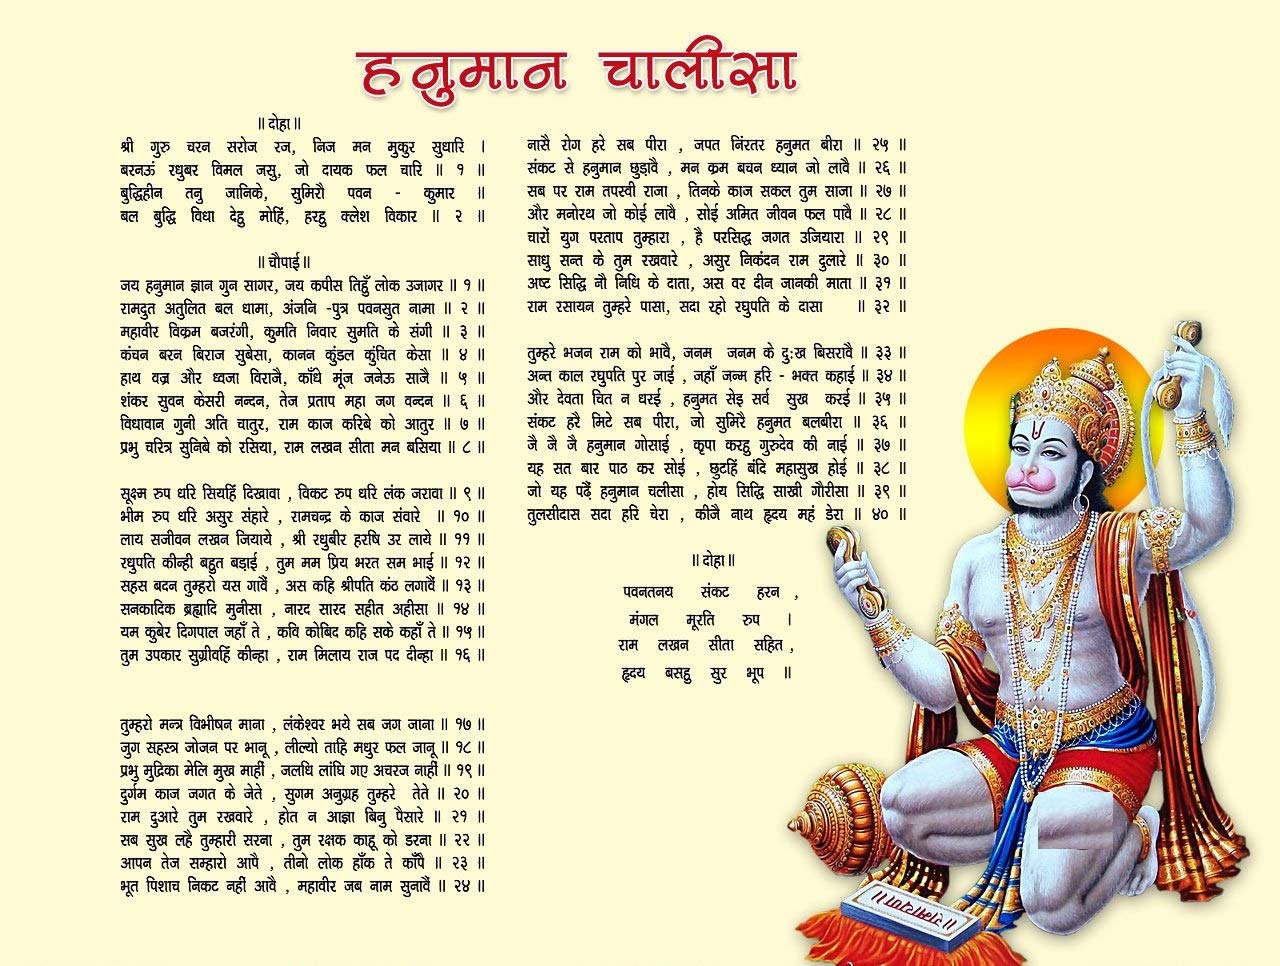 हनुमान चालीसा
॥ दोहा ॥
श्री गुरु चरन सरोज रज, निज मन मुकुर सुधारि ।
बरनऊं रधुबर विमल जसु, जो दायक फल चारि ॥ १ ॥
बुद्धिहीन तनु जानिके, सुमिरौ पवन - कुमार ॥
बल बुद्धि विधा देहु मोहिं, हरहु क्लेश विकार ॥ २ ॥
॥ चौपाई ॥
जय हनुमान ज्ञान गुन सागर, जय कपीस तिहुँ लोक उजागर ॥ १ ॥
रामदुत अतुलित बल धामा, अंजनि -पुत्र पवनसुत नामा ॥ २ ॥
महावीर विक्रम बजरंगी, कुमति निवार सुमति के संगी ॥ ३ ॥
कंचन बरन बिराज सुबेसा, कानन कुंडल कुंचित केसा ॥ ४ ॥
हाथ वज्र और ध्वजा विराजै, काँधे मूंज जनेऊ साजै ॥ ५ ॥
शंकर सुवन केसरी नन्दन, तेज प्रताप महा जग वन्दन ॥ ६ ॥
विधावान गुनी अति चातुर, राम काज करिबे को आतुर ॥ ७ ॥
प्रभु चरित्र सुनिबे को रसिया, राम लखन सीता मन बसिया ॥ ८ ॥
सूक्ष्म रुप धरि सियहिं दिखावा , विकट रुप धरि लंक जरावा ॥ ९ ॥
भीम रुप धरि असुर संहारे , रामचन्द्र के काज संवारे ॥ १० ॥
लाय सजीवन लखन जियाये , श्री रधुबीर हरषि उर लाये ॥ ११ ॥
रघुपति कीन्ही बहुत बड़ाई , तुम मम प्रिय भरत सम भाई ॥ १२ ॥
सहस बदन तुम्हरो यस गावैं , अस कहि श्रीपति कंठ लगावैं ॥ १३ ॥
सनकादिक ब्रह्मादि मुनीसा , नारद सारद सहीत अहीसा ॥ १४ ॥
यम कुबेर दिगपाल जहाँ ते , कवि कोबिद कहि सके कहाँ ते ॥ १५ ॥
तुम उपकार सुग्रीवहिं कीन्हा , राम मिलाय राज पद दीन्हा ॥ १६ ॥
तुम्हरो मन्त्र विभीषन माना , लंकेश्वर भये सब जग जाना ॥ १७ ॥
जुग सहस्त्र जोजन पर भानू , लील्यो ताहि मधुर फल जानू ॥ १८ ॥
प्रभु मुद्रिका मेलि मुख माहीं , जलधि लांघि गए अचरज नाहीं ॥ १९ ॥
दुर्गम काज जगत के जेते , सुगम अनुग्रह तुम्हरे तेते ॥ २० ॥
राम दुआरे तुम रखवारे , होत न आज्ञा बिनु पैसारे ॥ २१ ॥
सब सुख लहै तुम्हारी सरना , तुम रक्षक काहू को डरना ॥ २२ ॥
आपन तेज सम्हारो आपै , तीनो लोक हाँक ते काँपै ॥ २३ ॥
भूत पिशाच निकट नहीं आवै , महावीर जब नाम सुनावैं ॥ २४ ॥
नासै रोग हरे सब पीरा , जपत निंरतर हनुमत बीरा ॥ २५ ॥
संकट से हनुमान छुड़ावै , मन क्रम बचन ध्यान जो लावै ॥ २६ ॥
सब पर राम तपस्वी राजा , तिनके काज सकल तुम साजा ॥ २७ ॥
और मनोरथ जो कोई लावै , सोई अमित जीवन फल पावै ॥ २८ ॥
चारों युग परताप तुम्हारा , है परसिद्ध जगत उजियारा ॥ २९ ॥
साधु सन्त के तुम रखवारे , असुर निकंदन राम दुलारे ॥ ३० ॥
अष्ट सिद्धि नौ निधि के दाता, अस वर दीन जानकी माता ॥ ३१ ॥
राम रसायन तुम्हरे पासा, सदा रहो रघुपति के दासा ॥ ३२ ॥
तुम्हरे भजन राम को भावै, जनम जनम के दुःख बिसरावै ॥ ३३ ॥
अन्त काल रघुपति पुर जाई , जहाँ जन्म हरि - भक्त कहाई ॥ ३४ ॥
और देवता चित न धरई , हनुमत सेइ सर्व सुख करई ॥ ३५ ॥
संकट हरै मिटे सब पीरा, जो सुमिरै हनुमत बलबीरा ॥ ३६ ॥
जै जै जै हनुमान गोसाई , कृपा करहु गुरुदेव की नाई ॥ ३७ ॥
यह सत बार पाठ कर सोई , छुटहिं बंदि महासुख होई ॥ ३८ ॥
जो यह पढैं हनुमान चलीसा , होय सिद्धि साखी गौरीसा ॥ ३९ ॥
तुलसीदास सदा हरि चेरा , कीजै नाथ हृदय महं डेरा ॥ ४० ॥
॥ दोहा ॥
पवनतनय संकट हरन ,
मंगल मूरति रुप ।
राम लखन सीता सहित ,
हृदय बसहु सुर भूप ॥
॥रामायण॥